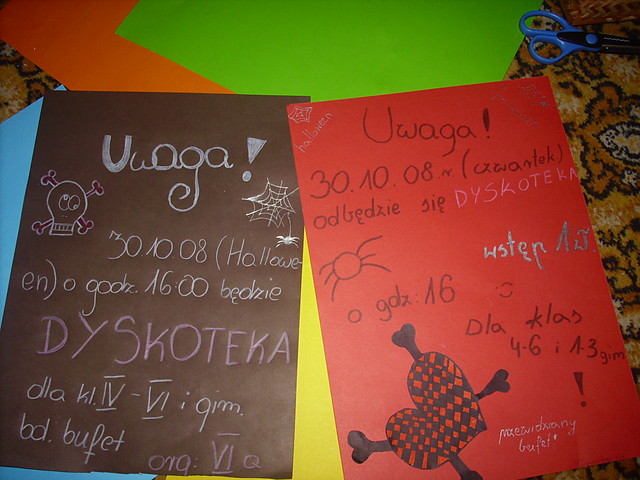 Uwaga!
30.10.08 (Hallowe-
en) o godz. 16:00 będzie
DYSKOTEKA
dla kl. IV - VI i gim.
bd. bufet
org: VI a
halloween
Uwaga!
30.10.08r. (czwartek)
odbędzie się DYSKOTEKA
wstęp 1zł.
o gdz: 16 :)
Dla klas
4-6 i 1-3 gim
!
przewidziany
bufet